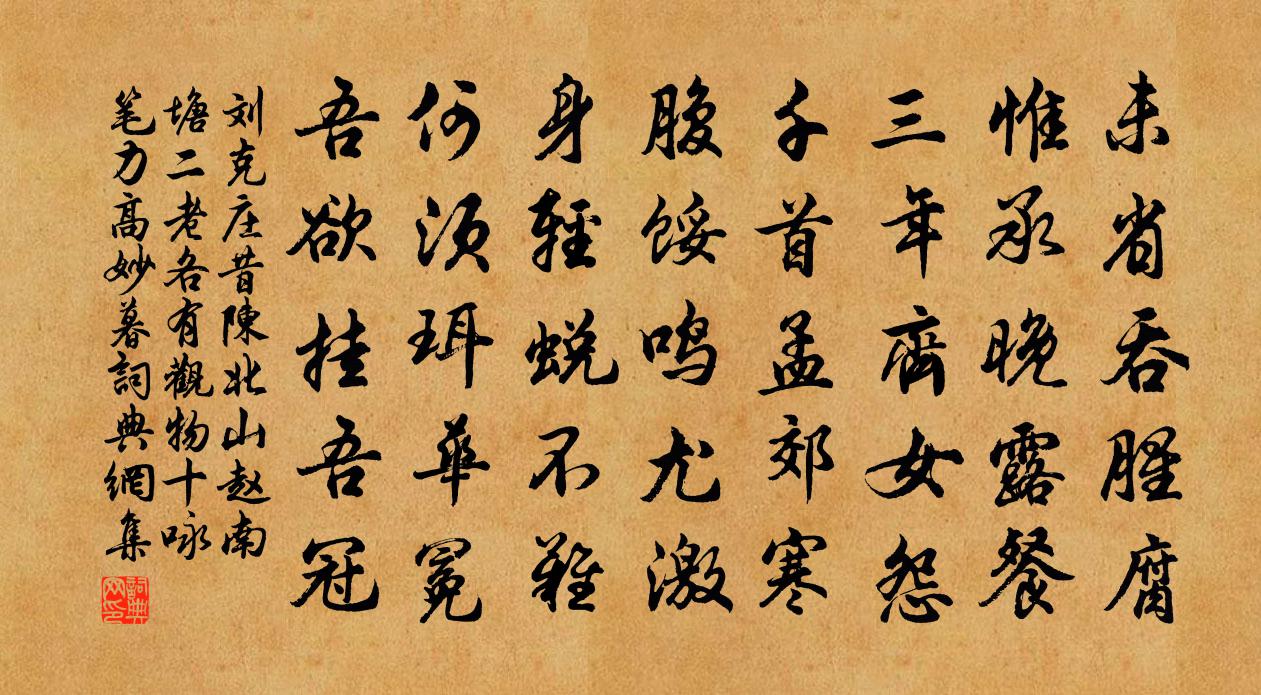 未省吞腥腐
惟承晚露餐
三年齊女怨
千首孟郊寒
腹馁鸣尤激
身輕蜕不難
何須珥華冕
吾欲挂吾冠
刘克庄昔陳北山赵南
塘二老各有觀物十咏
笔力高妙暮詞典網集